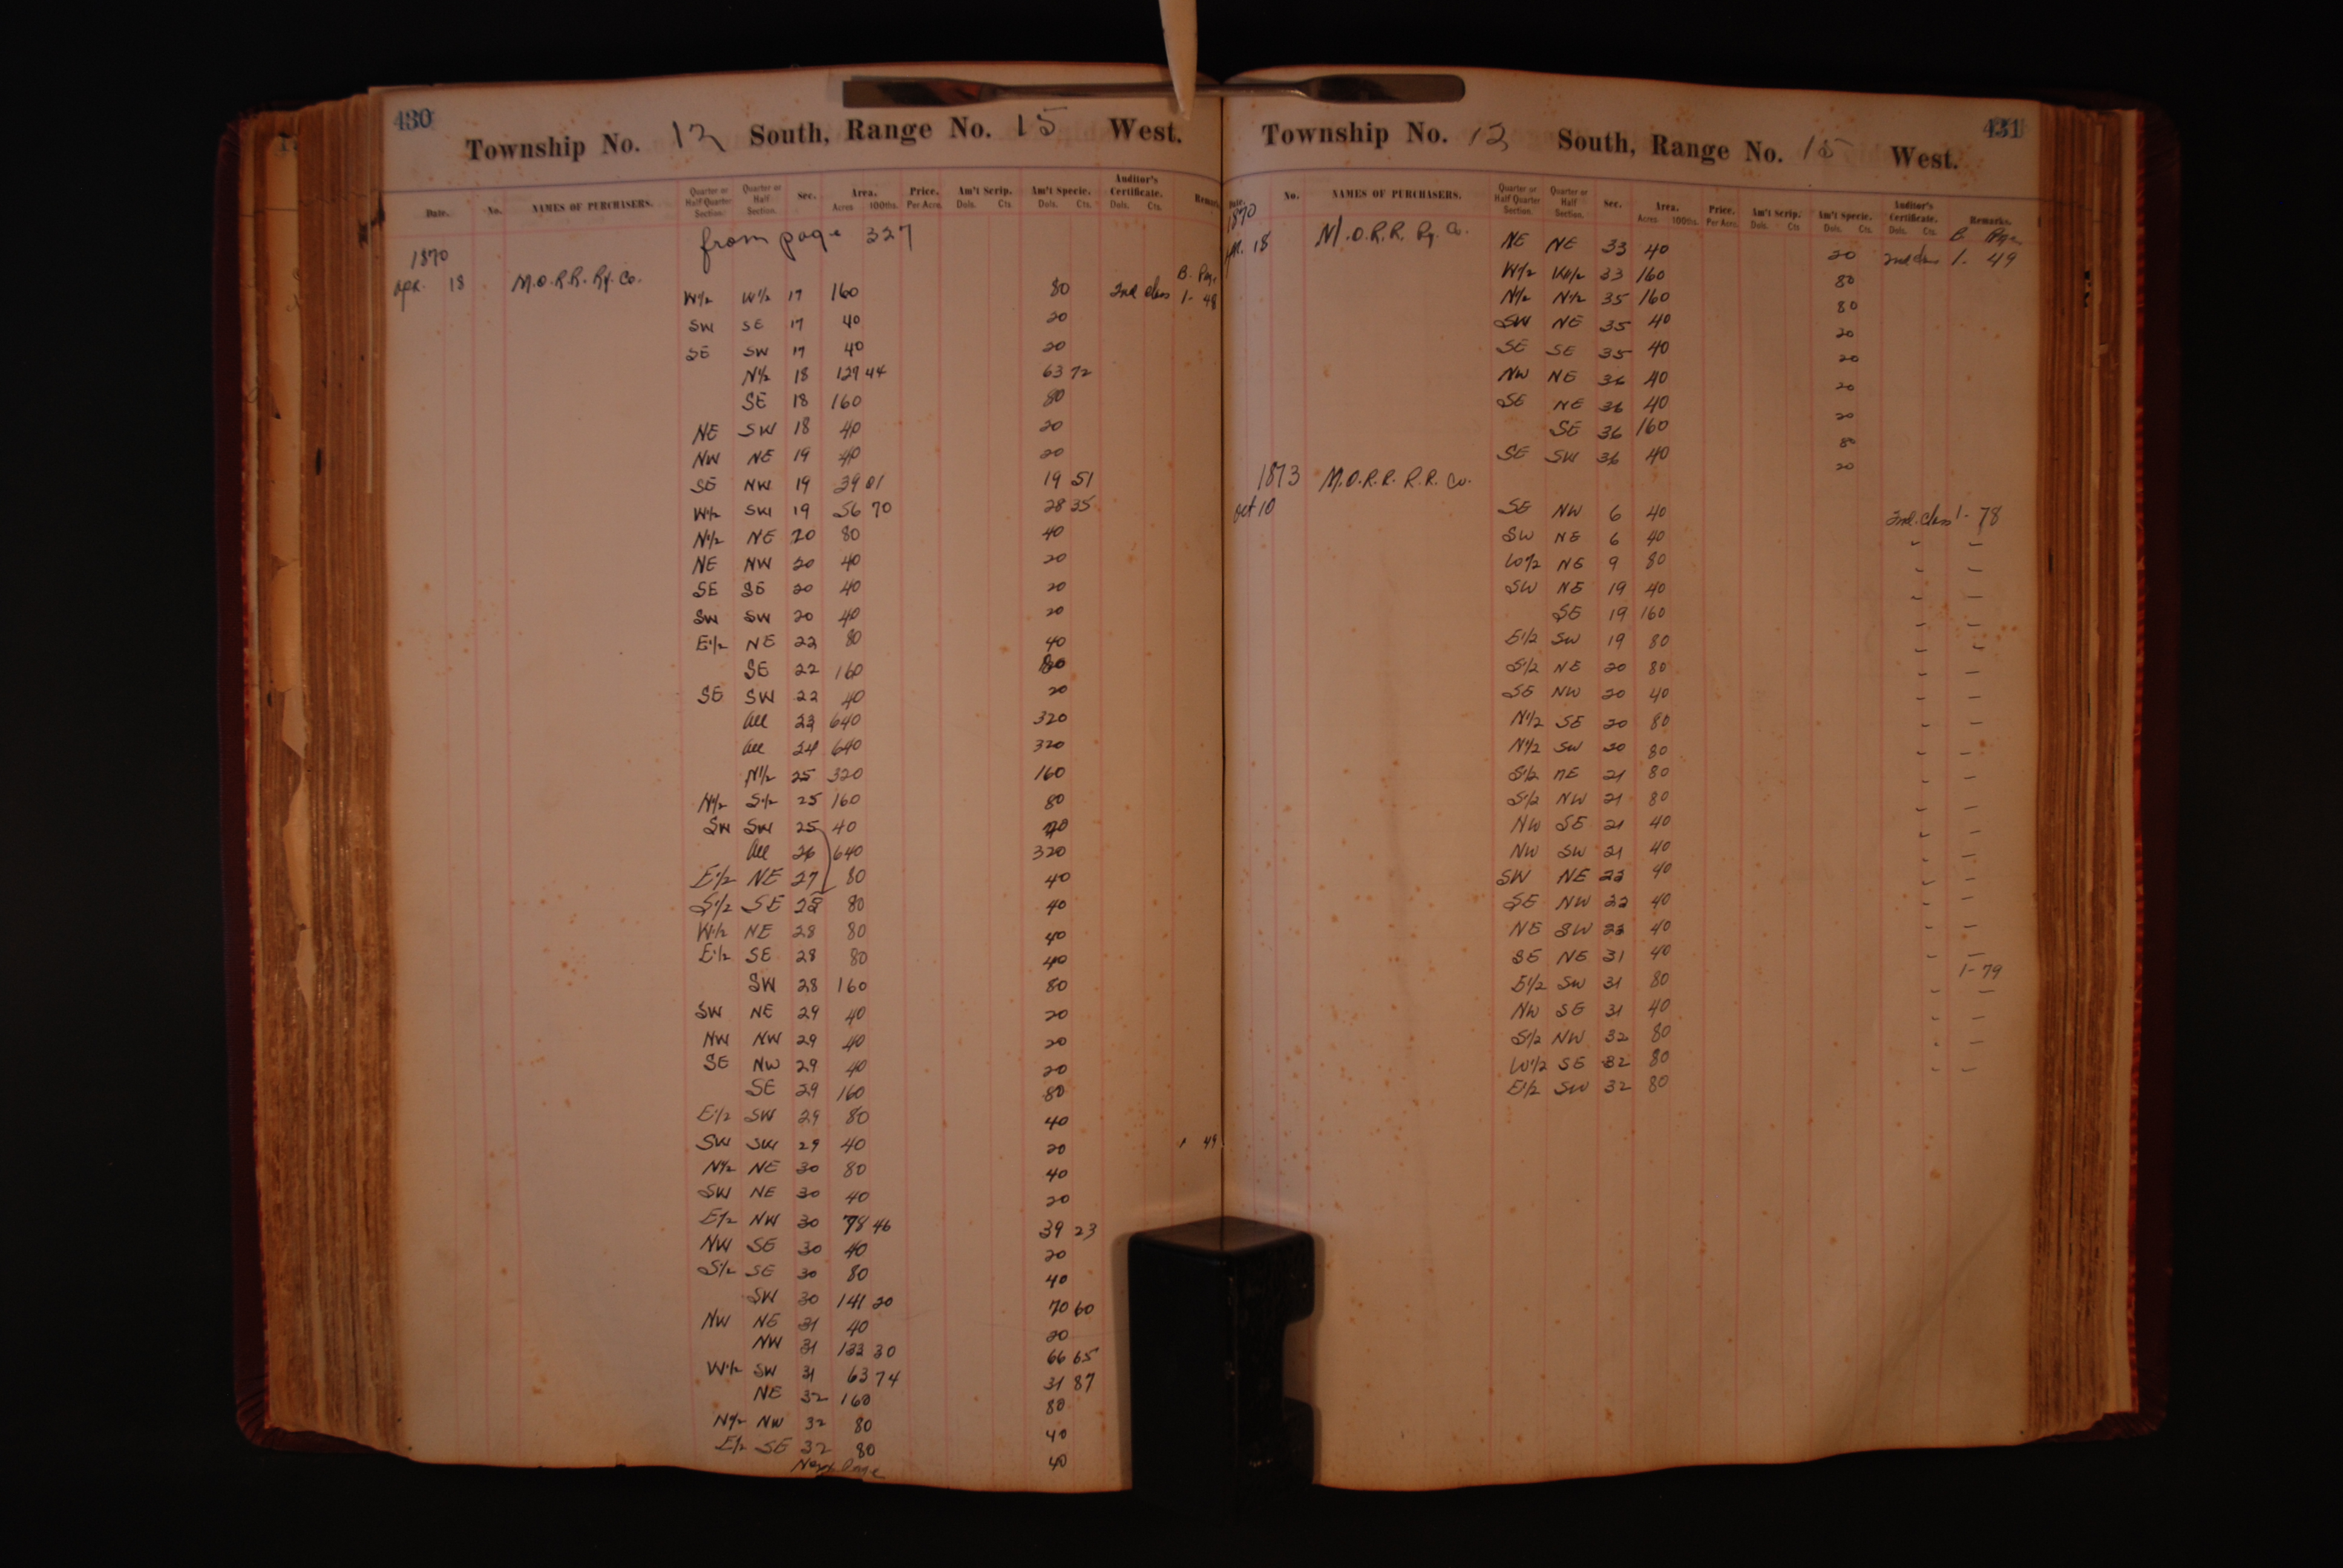 430
Township No. 12 South, Range No. 15 West.
Date. No. NAMES OF PURCHASERS. Quarter or Half Quarter Section. Quarter or Half Section. Sec. Area. Acres 100ths. Price. Per Acre. Am't Scrip. Dols. Cts. Am't Specie. Dols. Cts. Auditor's Certificate. Dols. Cts. Remarks
from page 327
1870
Apr. 18 M.O.R.R. Ry. Co. B. Pag.
W1/2 W1/2 17 160 80 2nd class 1- 48
SW SE 17 40 20
SE SW 17 40 20
N1/2 18 127 44 63 72
SE 18 160 80
NE SW 18 40 20
NW NE 19 40 20
SE NW 19 39 01 19 51
W1/2 SW 19 56 70 28 35
N1/2 NE 20 80 40
NE NW 20 40 20
SE SE 20 40 20
SW SW 20 40 20
E1/2 NE 22 80 40
SE 22 160 80
SE SW 22 40 20
All 23 640 320
All 24 640 320
N1/2 25 320 160
N1/2 S1/2 25 160 80
SW SW 25 40 20
All 26 640 320
E1/2 NE 27 80 40
S1/2 SE 28 80 40
W1/2 NE 28 80 40
E1/2 SE 28 80 40
SW 28 160 80
SW NE 29 40 20
NW NW 29 40 20
SE NW 29 40 20
SE 29 160 80
E1/2 SW 29 80 40
SW SW 29 40 20 1 49
N1/2 NE 30 80 40
SW NE 30 40 20
E1/2 NW 30 78 46 39 23
NW SE 30 40 20
S1/2 SE 30 80 40
SW 30 141 20 70 60
NW NE 31 40 20
NW 31 133 30 66 65
W1/2 SW 31 63 74 31 87
NE 32 160 80
N1/2 NW 32 80 40
E1/2 SE 32 80 40
Next Page
431
Township No. 12 South, Range No. 15 West.
Date. No. NAMES OF PURCHASERS. Quarter or Half Quarter Section. Quarter or Half Section. Sec. Area. Acres 100ths. Price. Per Acre. Am't Scrip. Dols. Cts Am't Specie. Dols. Cts. Auditor's Certificate. Dols. Cts. Remarks.
1870 B. Page
Ap. 18 M.O.R.R. Ry. Co. NE NE 33 40 20 2nd class 1- 49
W1/2 W1/2 33 160 80
N1/2 N1/2 35 160 80
SW NE 35 40 20
SE SE 35 40 20
NW NE 36 40 20
SE NE 36 40 20
SE 36 160 80
SE SW 36 40 20
1873 M.O.R.R. R.R. Co.
Oct 10 SE NW 6 40 2nd. Class 1- 78
SW NE 6 40 " "
W1/2 NE 9 80 " "
SW NE 19 40 " "
SE 19 160 " "
E1/2 SW 19 80 " "
S1/2 NE 20 80 " "
SE NW 20 40 " "
N1/2 SE 20 80 " "
N1/2 SW 20 80 " "
S1/2 NE 21 80 " "
S1/2 NW 21 80 " "
NW SE 21 40 " "
NW SW 21 40 " "
SW NE 22 40 " "
SE NW 22 40 " "
NE SW 22 40 " "
SE NE 31 40 " 1-79
E1/2 SW 31 80 " "
NW SE 31 40 " "
S1/2 NW 32 80 " "
W1/2 SE 32 80 " "
E1/2 SW 32 80